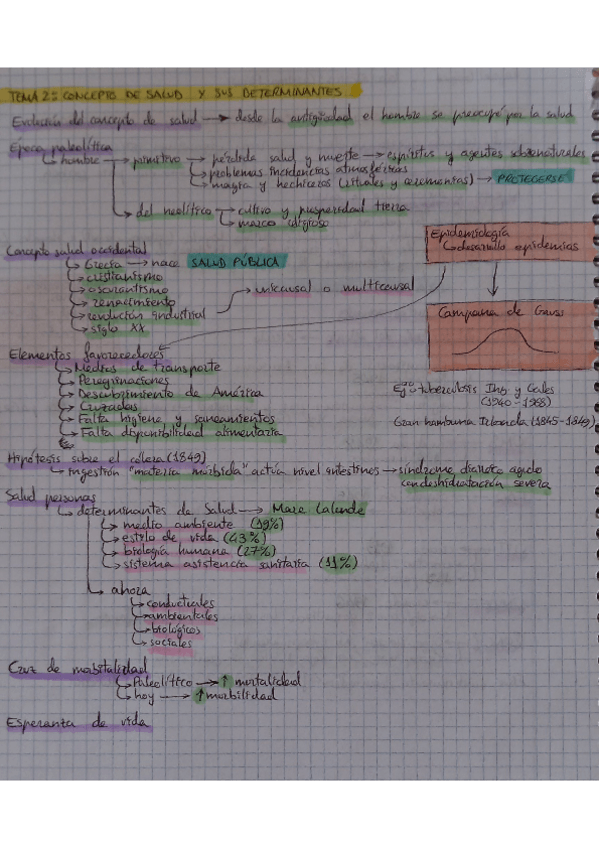 TEMA 2: CONCEPTO DE SALUD Y SUS DETERMINANTES
Evolución del concepto de salud → desde la antigüedad el hombre se preocupó por la salud
Época paleolítica
↳ hombre → primitivo → pérdida salud y muerte → espíritus y agentes sobrenaturales
↳ problemas incidencias atmosféricas
↳ magia y hechiceros (rituales y ceremonias) → PROTEGERSE
↳ del neolítico → cultivo y prosperidad tierra
↳ marco religioso
Epidemiología
↳ desarrollo epidemias
Concepto salud occidental
↳ Grecia → nace SALUD PÚBLICA
↳ cristianismo
↳ oscurantismo
↳ renacimiento
↳ revolución industrial → unicausal o multicausal
↳ siglo XX
Campana de Gauss
Elementos favorecedores
↳ Medios de transporte
↳ Peregrinaciones
↳ Descubrimiento de América
↳ Cruzadas
↳ Falta higiene y saneamientos
↳ Falta disponibilidad alimentaria
Ej: tuberculosis Ing y Gales
(1940-1968)
Gran hambruna Irlanda (1845-1849)
Hipótesis sobre el cólera (1849)
↳ ingestión "materia mórbida" actúa nivel intestinos → síndrome diarreico agudo
con deshidratación severa
Salud personas
↳ determinantes de Salud → Marc Lalonde
↳ medio ambiente (19%)
↳ estilo de vida (43%)
↳ biología humana (27%)
↳ sistema asistencia sanitaria (11%)
↳ ahora
↳ conductuales
↳ ambientales
↳ biológicos
↳ sociales
Cruz de morbitalidad
↳ Paleolítico → ↑ mortalidad
↳ hoy → ↑ morbilidad
Esperanza de vida